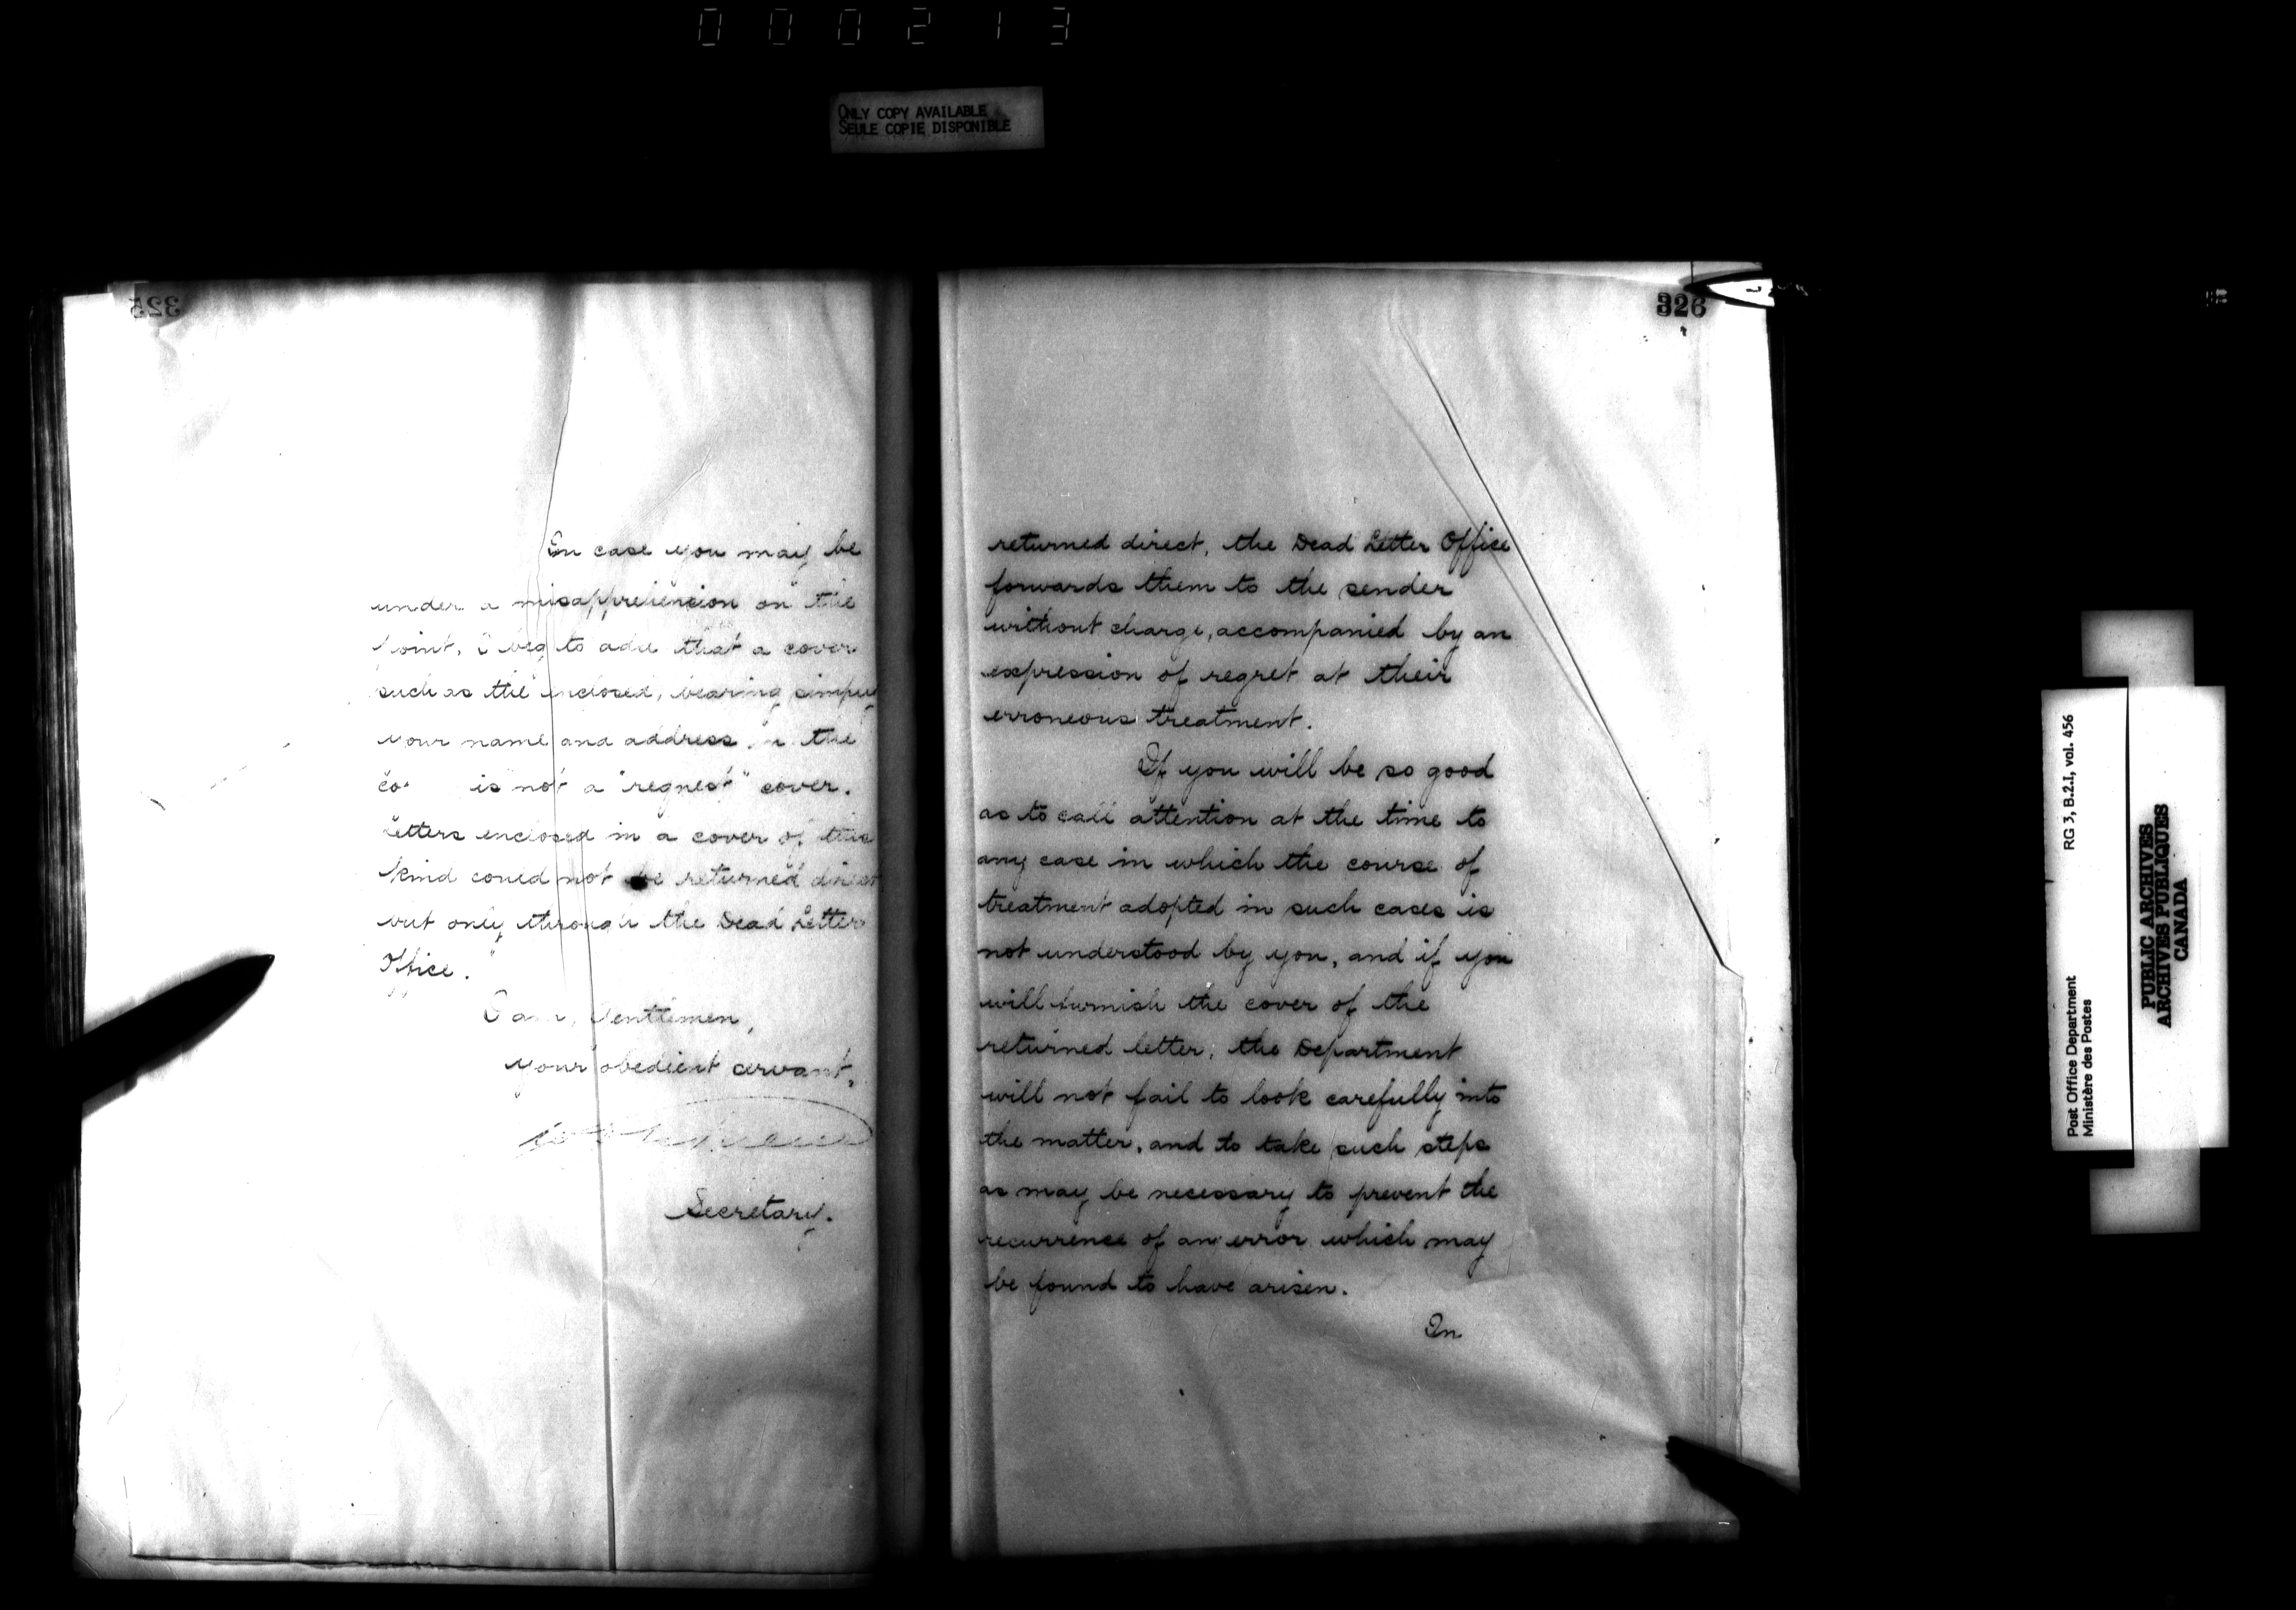 000213
ONLY COPY AVAILABLE
SEULE COPIE DISPONIBLE
325
In case you may be
under a misapprehension on the
point, I beg to add that a cover
such as the enclosed, bearing simply
your name and address in the
co is not a "request" cover.
Letters enclosed in a cover of this
kind could not be returned direct
but only through the Dead Letter
Office.
I am, Gentlemen,
Your obedient servant,
Secretary.
326
returned direct, the Dead Letter Office
forwards them to the sender
without charge, accompanied by an
expression of regret at their
erroneous treatment.
If you will be so good
as to call attention at the time to
any case in which the course of
treatment adopted in such cases is
not understood by you, and if you
will furnish the cover of the
returned letter, the Department
will not fail to look carefully into
the matter, and to take such steps
as may be necessary to prevent the
recurrence of an error which may
be found to have arisen.
In
Post Office Department RG 3, B.2.I, vol. 456
Ministère des Postes
PUBLIC ARCHIVES
ARCHIVES PUBLIQUES
CANADA